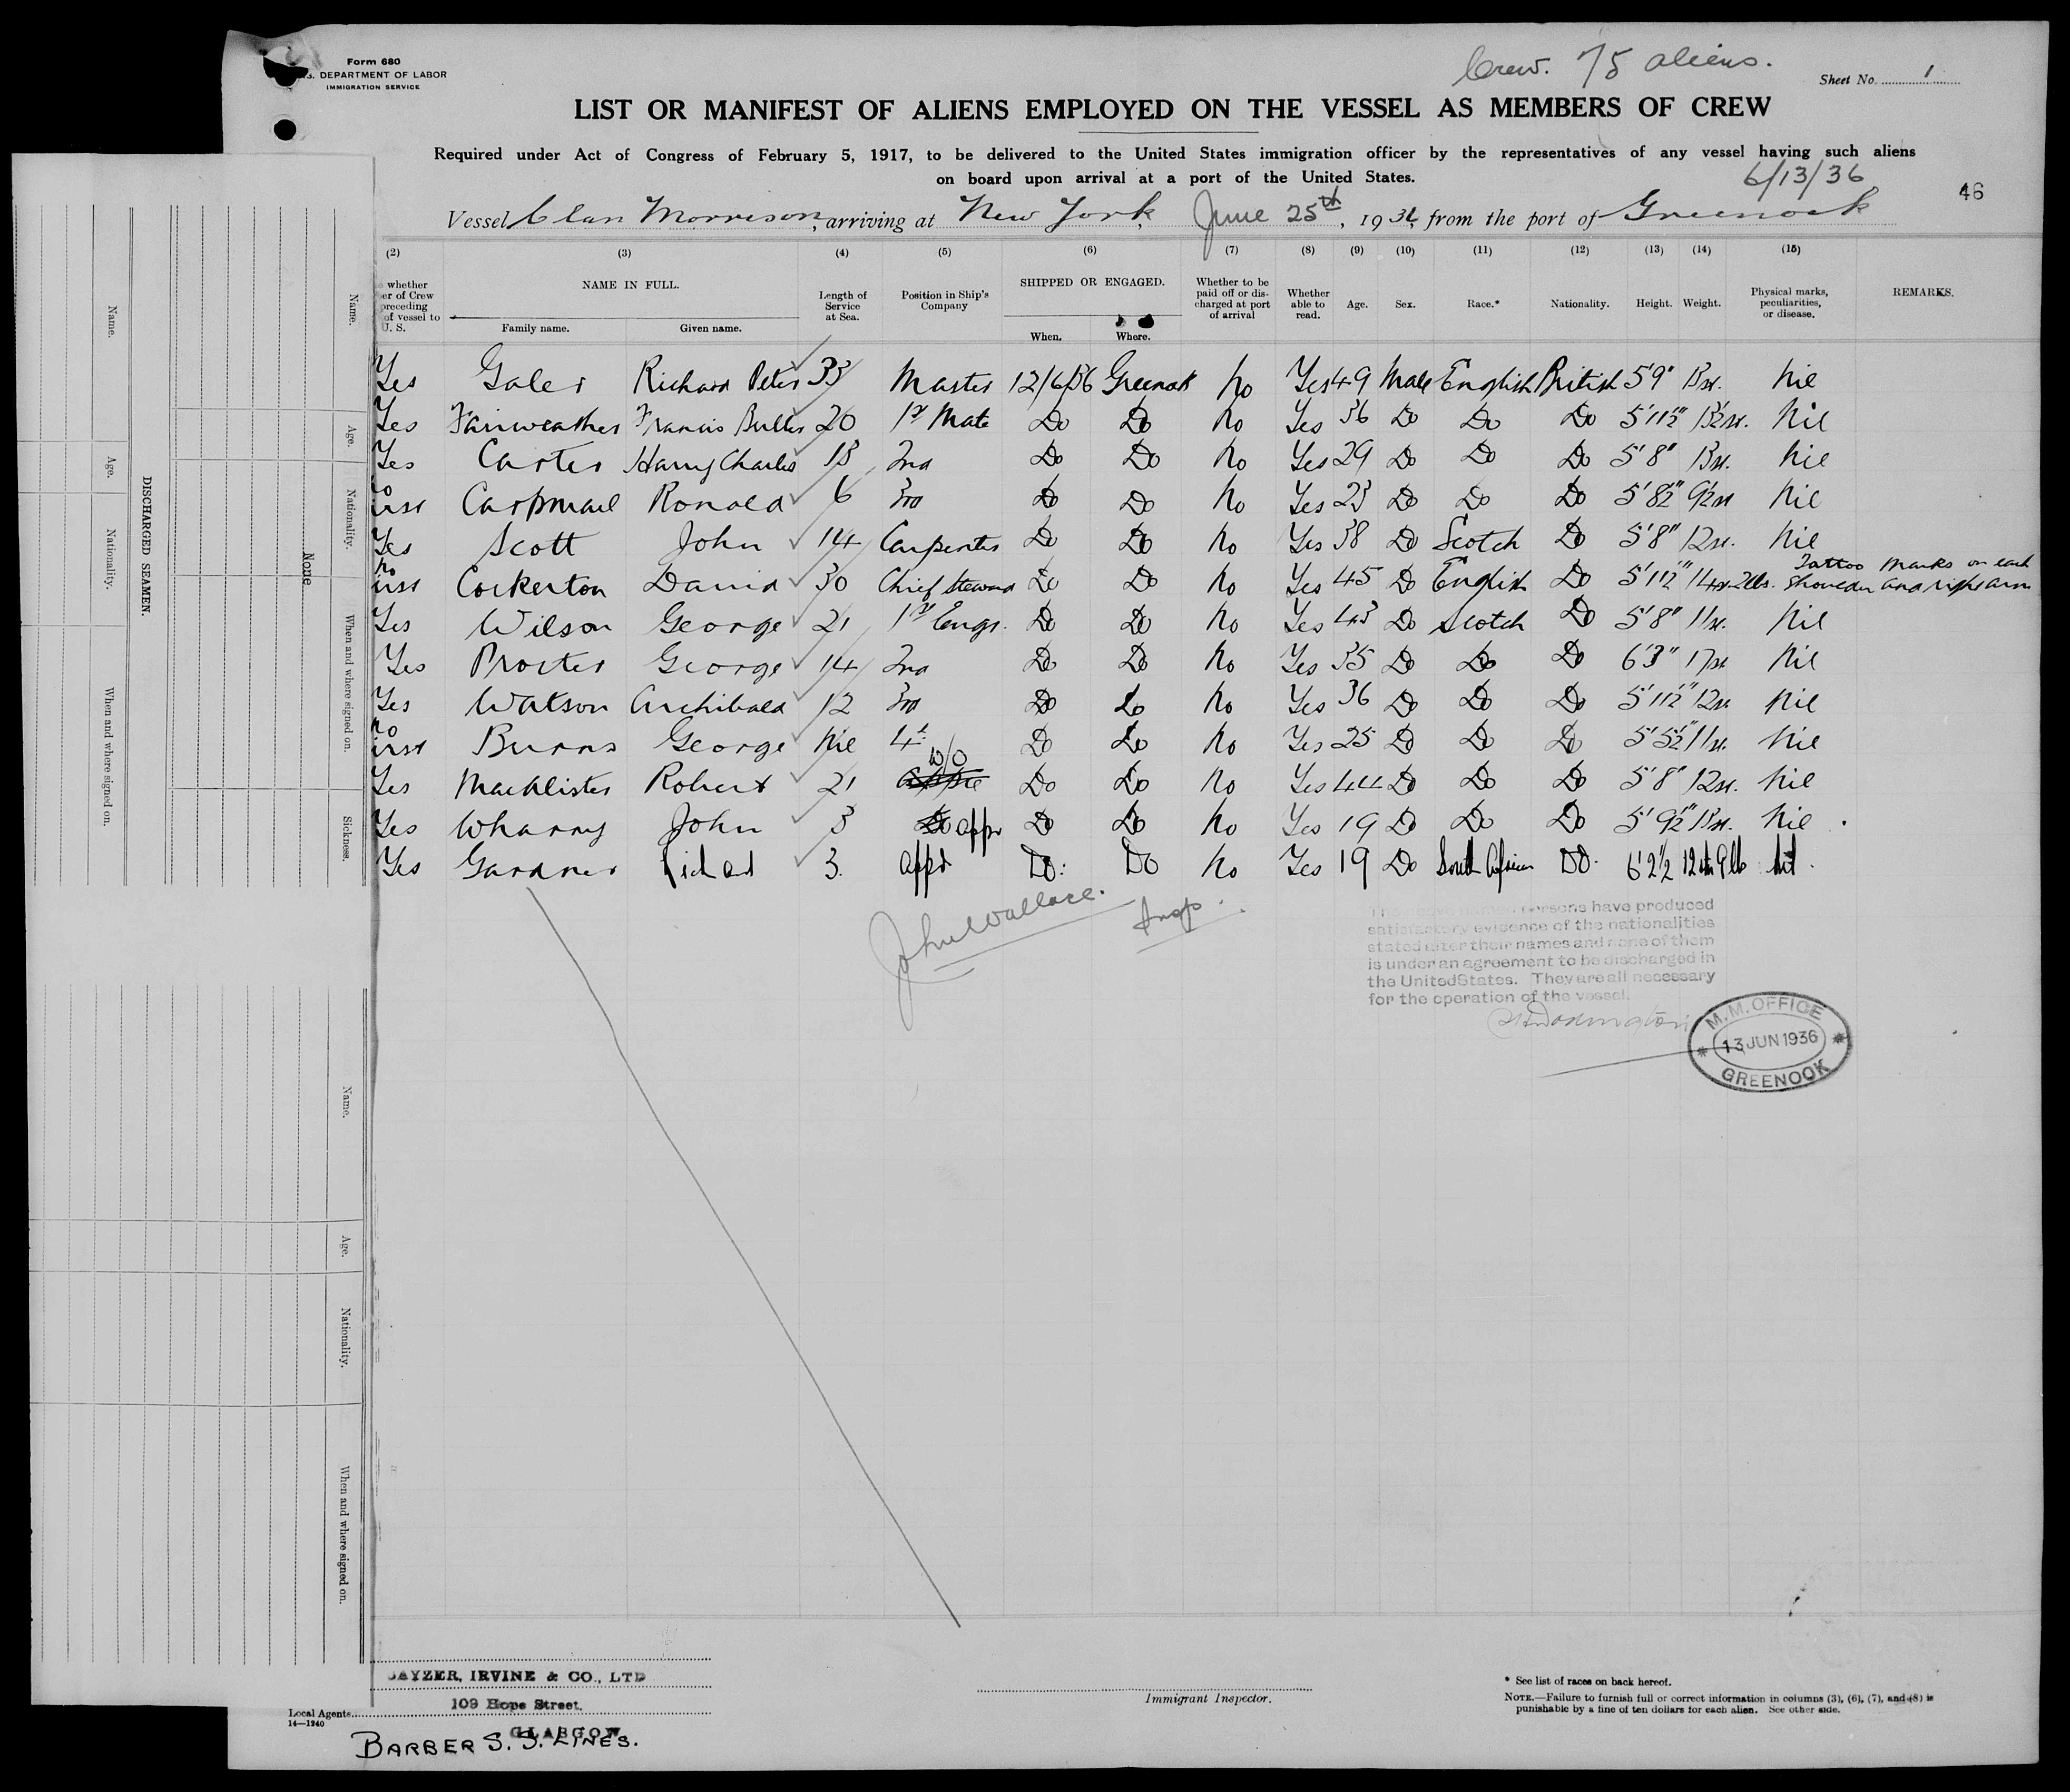 Form 680
U.S. DEPARTMENT OF LABOR
IMMIGRATION SERVICE
Crew. 75 aliens.
Sheet No. 1
LIST OR MANIFEST OF ALIENS EMPLOYED ON THE VESSEL AS MEMBERS OF CREW
Required under Act of Congress of February 5, 1917, to be delivered to the United States immigration officer by the representatives of any vessel having such aliens
on board upon arrival at a port of the United States.
6/13/36
46
Vessel Clan Morrison, arriving at New York, June 25th, 1936, from the port of Greenock
(2) (3) (4) (5) (6) (7) (8) (9) (10) (11) (12) (13) (14) (15)
whether
er of Crew
preceding
of vessel to
U. S.
NAME IN FULL.
Family name. Given name.
Length of
Service
at Sea.
Position in Ship's
Company
SHIPPED OR ENGAGED.
When. Where.
Whether to be
paid off or dis-
charged at port
of arrival
Whether
able to
read.
Age.
Sex.
Race.*
Nationality.
Height.
Weight.
Physical marks,
peculiarities,
or disease.
REMARKS.
Yes Gale Richard Peter 33 Master 12/6/36 Greenock No Yes 49 Male English British 5'9" 13st. Nil
Yes Fairweather Francis Butler 20 1st Mate Do Do No Yes 36 Do Do Do 5'11½" 13½st. Nil
Yes Carter Harry Charles 13 2nd Do Do No Yes 29 Do Do Do 5'8" 13st. Nil
No
irst Carpmael Ronald 6 3rd Do Do No Yes 23 Do Do Do 5'8½" 9½st Nil
Yes Scott John 14 Carpenter Do Do No Yes 38 Do Scotch Do 5'8" 12st. Nil
No
irst Cockerton David 30 Chief Steward Do Do No Yes 45 Do English Do 5'11½" 14st 2lbs. Tattoo marks on each
shoulder and right arm
Yes Wilson George 21 1st Engr. Do Do No Yes 43 Do Scotch Do 5'8" 11st. Nil
Yes Procter George 14 2nd Do Do No Yes 35 Do Do Do 6'3" 17st Nil
Yes Watson Archibald 12 3rd Do Do No Yes 36 Do Do Do 5'11½" 12st Nil
No
irst Burns George Nil 4th Do Do No Yes 25 Do Do Do 5'5½" 11st. Nil
Yes MacAlister Robert 21 W/O Do Do No Yes 44 Do Do Do 5'8" 12st. Nil
Yes Wharry John 3 Do appr Do Do No Yes 19 Do Do Do 5'9½" 13st. Nil
Yes Gardner Richard 3. appr Do. Do No Yes 19 Do South African Do. 6'2½ 12st 9lb Nil.
John Wallace.
Insp.
The above named persons have produced
satisfactory evidence of the nationalities
stated after their names and none of them
is under an agreement to be discharged in
the United States. They are all necessary
for the operation of the vessel.
M.M. OFFICE
13 JUN 1936
GREENOCK
DISCHARGED SEAMEN.
Name.
Age.
Nationality.
When and where signed on.
Name.
Age.
Nationality.
When and where signed on.
Sickness.
None
Name.
Age.
Nationality.
When and where signed on.
CAYZER, IRVINE & CO., LTD
109 Hope Street,
GLASGOW
Local Agents
14—1240
BARBER S. S. LINES.
Immigrant Inspector.
* See list of races on back hereof.
NOTE.—Failure to furnish full or correct information in columns (3), (6), (7), and (8) is
punishable by a fine of ten dollars for each alien. See other side.